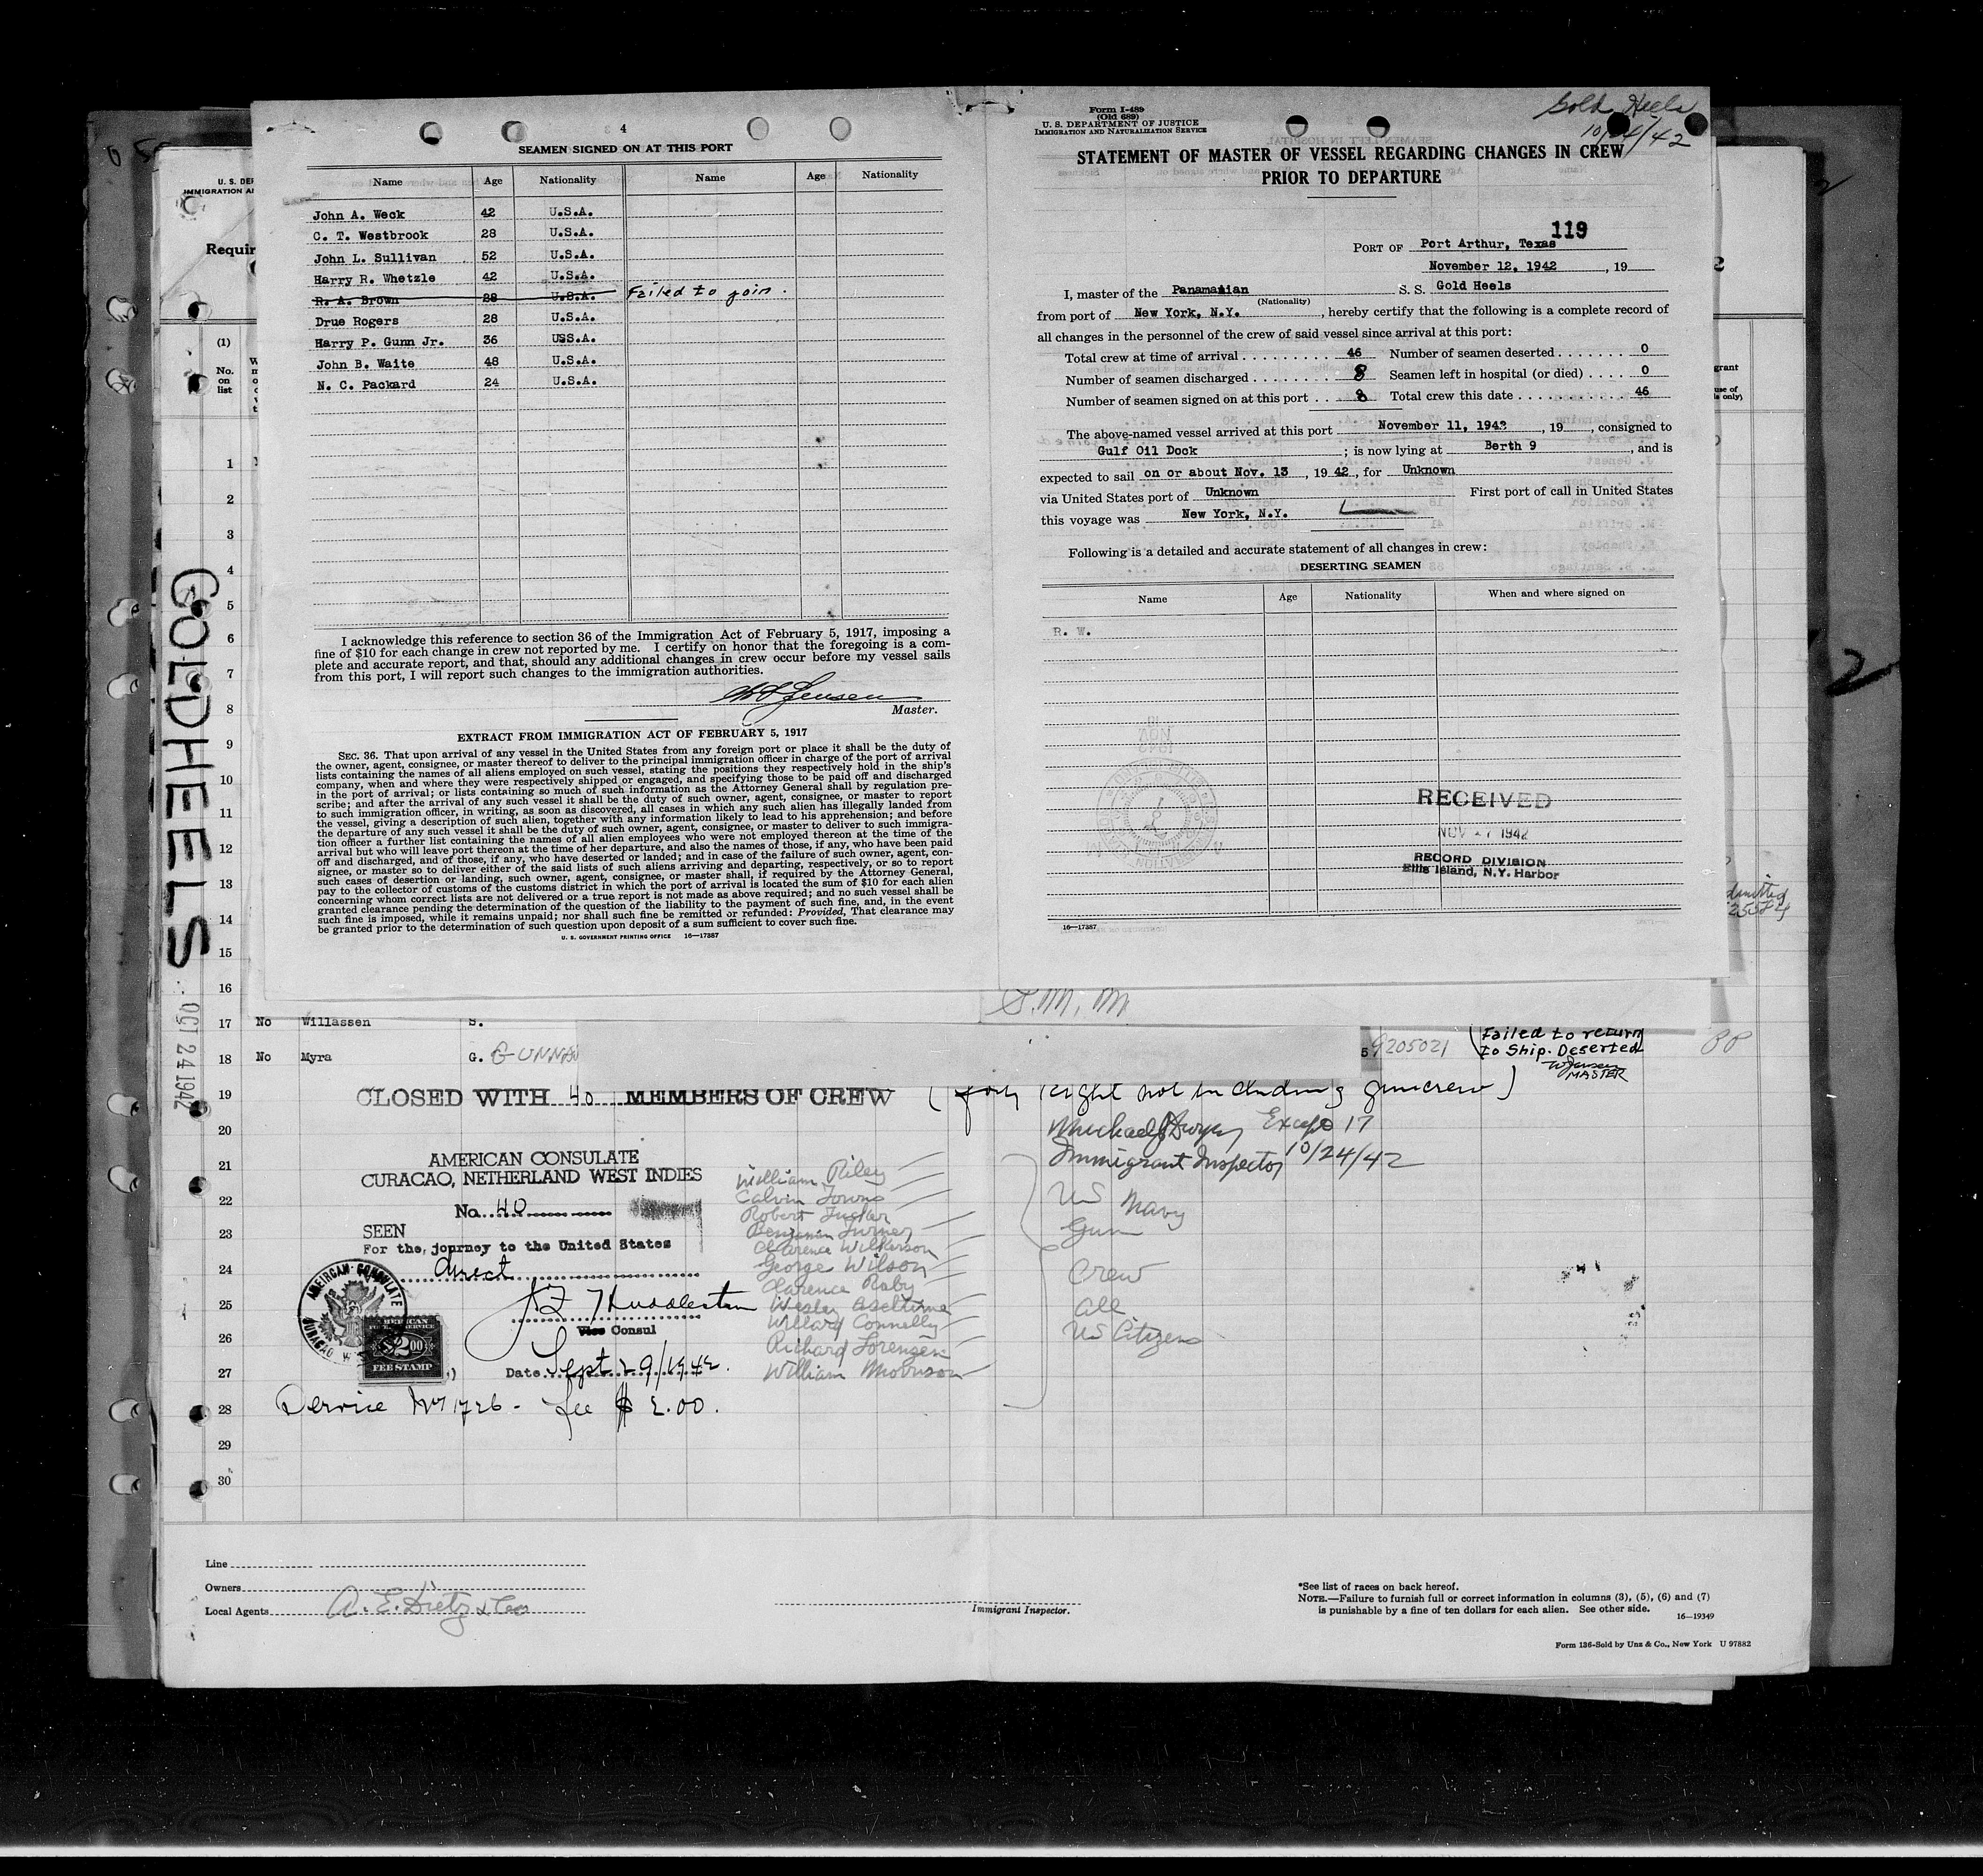 4
SEAMEN SIGNED ON AT THIS PORT
Name Age Nationality Name Age Nationality
John A. Weck 42 U.S.A.
C. T. Westbrook 28 U.S.A.
John L. Sullivan 52 U.S.A.
Harry R. Whetzle 42 U.S.A.
R. A. Brown 28 U.S.A. Failed to join.
Drue Rogers 28 U.S.A.
Harry P. Gunn Jr. 36 USS.A.
John B. Waite 48 U.S.A.
N. C. Packard 24 U.S.A.
I acknowledge this reference to section 36 of the Immigration Act of February 5, 1917, imposing a
fine of $10 for each change in crew not reported by me. I certify on honor that the foregoing is a com-
plete and accurate report, and that, should any additional changes in crew occur before my vessel sails
from this port, I will report such changes to the immigration authorities.
Jensen
Master.
EXTRACT FROM IMMIGRATION ACT OF FEBRUARY 5, 1917
SEC. 36. That upon arrival of any vessel in the United States from any foreign port or place it shall be the duty of
the owner, agent, consignee, or master thereof to deliver to the principal immigration officer in charge of the port of arrival
lists containing the names of all aliens employed on such vessel, stating the positions they respectively hold in the ship's
company, when and where they were respectively shipped or engaged, and specifying those to be paid off and discharged
in the port of arrival; or lists containing so much of such information as the Attorney General shall by regulation pre-
scribe; and after the arrival of any such vessel it shall be the duty of such owner, agent, consignee, or master to report
to such immigration officer, in writing, as soon as discovered, all cases in which any such alien has illegally landed from
the vessel, giving a description of such alien, together with any information likely to lead to his apprehension; and before
the departure of any such vessel it shall be the duty of such owner, agent, consignee, or master to deliver to such immigra-
tion officer a further list containing the names of all alien employees who were not employed thereon at the time of the
arrival but who will leave port thereon at the time of her departure, and also the names of those, if any, who have been paid
off and discharged, and of those, if any, who have deserted or landed; and in case of the failure of such owner, agent, con-
signee, or master so to deliver either of the said lists of such aliens arriving and departing, respectively, or so to report
such cases of desertion or landing, such owner, agent, consignee, or master shall, if required by the Attorney General,
pay to the collector of customs of the customs district in which the port of arrival is located the sum of $10 for each alien
concerning whom correct lists are not delivered or a true report is not made as above required; and no such vessel shall be
granted clearance pending the determination of the question of the liability to the payment of such fine, and, in the event
such fine is imposed, while it remains unpaid; nor shall such fine be remitted or refunded: Provided, That clearance may
be granted prior to the determination of such question upon deposit of a sum sufficient to cover such fine.
U. S. GOVERNMENT PRINTING OFFICE 16—17387
Form I-489
(Old 689)
U. S. DEPARTMENT OF JUSTICE
IMMIGRATION AND NATURALIZATION SERVICE
Gold Heels
10/24/42
STATEMENT OF MASTER OF VESSEL REGARDING CHANGES IN CREW
PRIOR TO DEPARTURE
119
PORT OF Port Arthur, Texas
November 12, 1942, 19
I, master of the Panamanian S. S. Gold Heels
(Nationality)
from port of New York, N.Y., hereby certify that the following is a complete record of
all changes in the personnel of the crew of said vessel since arrival at this port:
Total crew at time of arrival 46 Number of seamen deserted 0
Number of seamen discharged 8 Seamen left in hospital (or died) 0
Number of seamen signed on at this port 8 Total crew this date 46
The above-named vessel arrived at this port November 11, 1942, 19, consigned to
Gulf Oil Dock; is now lying at Berth 9, and is
expected to sail on or about Nov. 13, 1942, for Unknown
via United States port of Unknown First port of call in United States
this voyage was New York, N.Y.
Following is a detailed and accurate statement of all changes in crew:
DESERTING SEAMEN
Name Age Nationality When and where signed on
R. W.
RECEIVED
NOV 27 1942
RECORD DIVISION
Ellis Island, N.Y. Harbor
16—17387
U. S. DE
IMMIGRATION A
Requir
(1)
No. on list
1
2
3
4
5
6
7
8
9
10
11
12
13
14
15
16
GOLDHEELS
OCT 24 1942
17 No Willassen S.
18 No Myra G. GUNNAR 9205021 (Failed to return
to Ship. Deserted
MASTER
19 CLOSED WITH 40 MEMBERS OF CREW (forty eight not including guncrew)
20 Except 17
Immigrant Inspector 10/24/42
21 AMERICAN CONSULATE
CURACAO, NETHERLAND WEST INDIES
22 No. 40
23 SEEN
For the journey to the United States
24 direct
25 Huddleston
26 Vice Consul
27 Date Sept 29/1942.
28 Service No 1726 - fee $ 2.00.
29
30
AMERICAN CONSULATE
CURACAO
$2.00
FEE STAMP
William Riley
Calvin Towns
Robert Tucker
Benjamin Turner
Clarence Wilkerson
George Wilson
Clarence Raby
Wesley
Willard Connelly
Richard Lorensen
William Morrison
US Navy
Gun
Crew
all
US Citizens
Line
Owners
Local Agents A. E. Dietz & Co
Immigrant Inspector.
*See list of races on back hereof.
NOTE.—Failure to furnish full or correct information in columns (3), (5), (6) and (7)
is punishable by a fine of ten dollars for each alien. See other side.
16—19349
Form 136-Sold by Unz & Co., New York U 97882